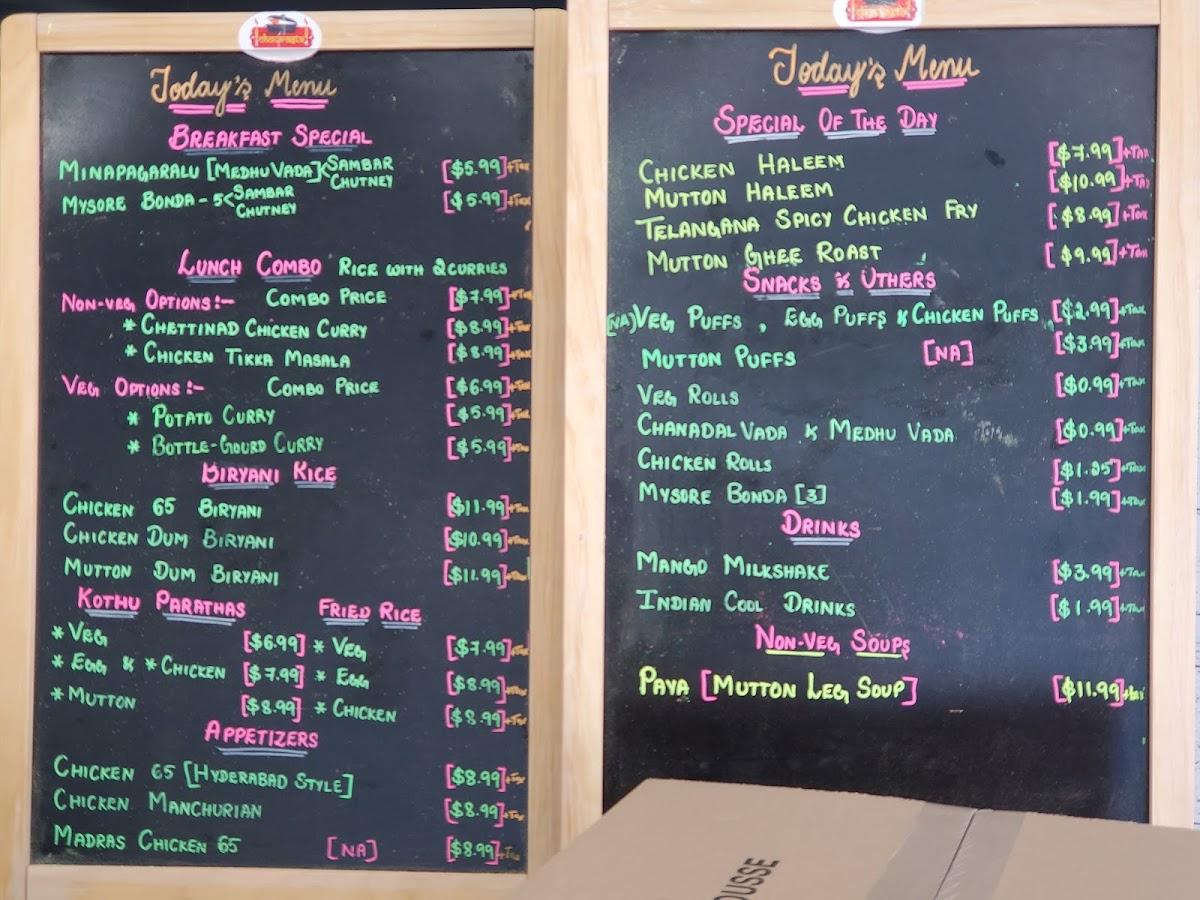 chowrasta
Today's Menu
BREAKFAST SPECIAL
MINAPAGARALU [MEDHU VADA] < SAMBAR CHUTNEY [$5.99]+Tax
MYSORE BONDA - 5 < SAMBAR CHUTNEY [$5.99]+Tax
LUNCH COMBO RICE WITH 2 CURRIES
NON-VEG OPTIONS:- COMBO PRICE [$7.99]+Tax
* CHETTINAD CHICKEN CURRY [$8.99]+Tax
* CHICKEN TIKKA MASALA [$8.99]+Tax
VEG OPTIONS:- COMBO PRICE [$6.99]+Tax
* POTATO CURRY [$5.99]+Tax
* BOTTLE-GOURD CURRY [$5.99]+Tax
BIRYANI RICE
CHICKEN 65 BIRYANI [$11.99]+Tax
CHICKEN DUM BIRYANI [$10.99]+Tax
MUTTON DUM BIRYANI [$11.99]+Tax
KOTHU PARATHAS FRIED RICE
* VEG [$6.99] * VEG [$7.99]+Tax
* EGG & * CHICKEN [$7.99] * EGG [$8.99]+Tax
* MUTTON [$8.99] * CHICKEN [$8.99]+Tax
APPETIZERS
CHICKEN 65 [HYDERABAD STYLE] [$8.99]+Tax
CHICKEN MANCHURIAN [$8.99]+Tax
MADRAS CHICKEN 65 [NA] [$8.99]+Tax
Today's Menu
SPECIAL OF THE DAY
CHICKEN HALEEM [$7.99]+Tax
MUTTON HALEEM [$10.99]+Tax
TELANGANA SPICY CHICKEN FRY [$8.99]+Tax
MUTTON GHEE ROAST [$9.99]+Tax
SNACKS & OTHERS
[NA] VEG PUFFS, EGG PUFFS & CHICKEN PUFFS [$2.99]+Tax
MUTTON PUFFS [NA] [$3.99]+Tax
VEG ROLLS [$0.99]+Tax
CHANADAL VADA & MEDHU VADA [$0.99]+Tax
CHICKEN ROLLS [$1.25]+Tax
MYSORE BONDA [3] [$1.99]+Tax
DRINKS
MANGO MILKSHAKE [$3.99]+Tax
INDIAN COOL DRINKS [$1.99]+Tax
NON-VEG SOUPS
PAYA [MUTTON LEG SOUP] [$11.99]+Tax
OUSSE